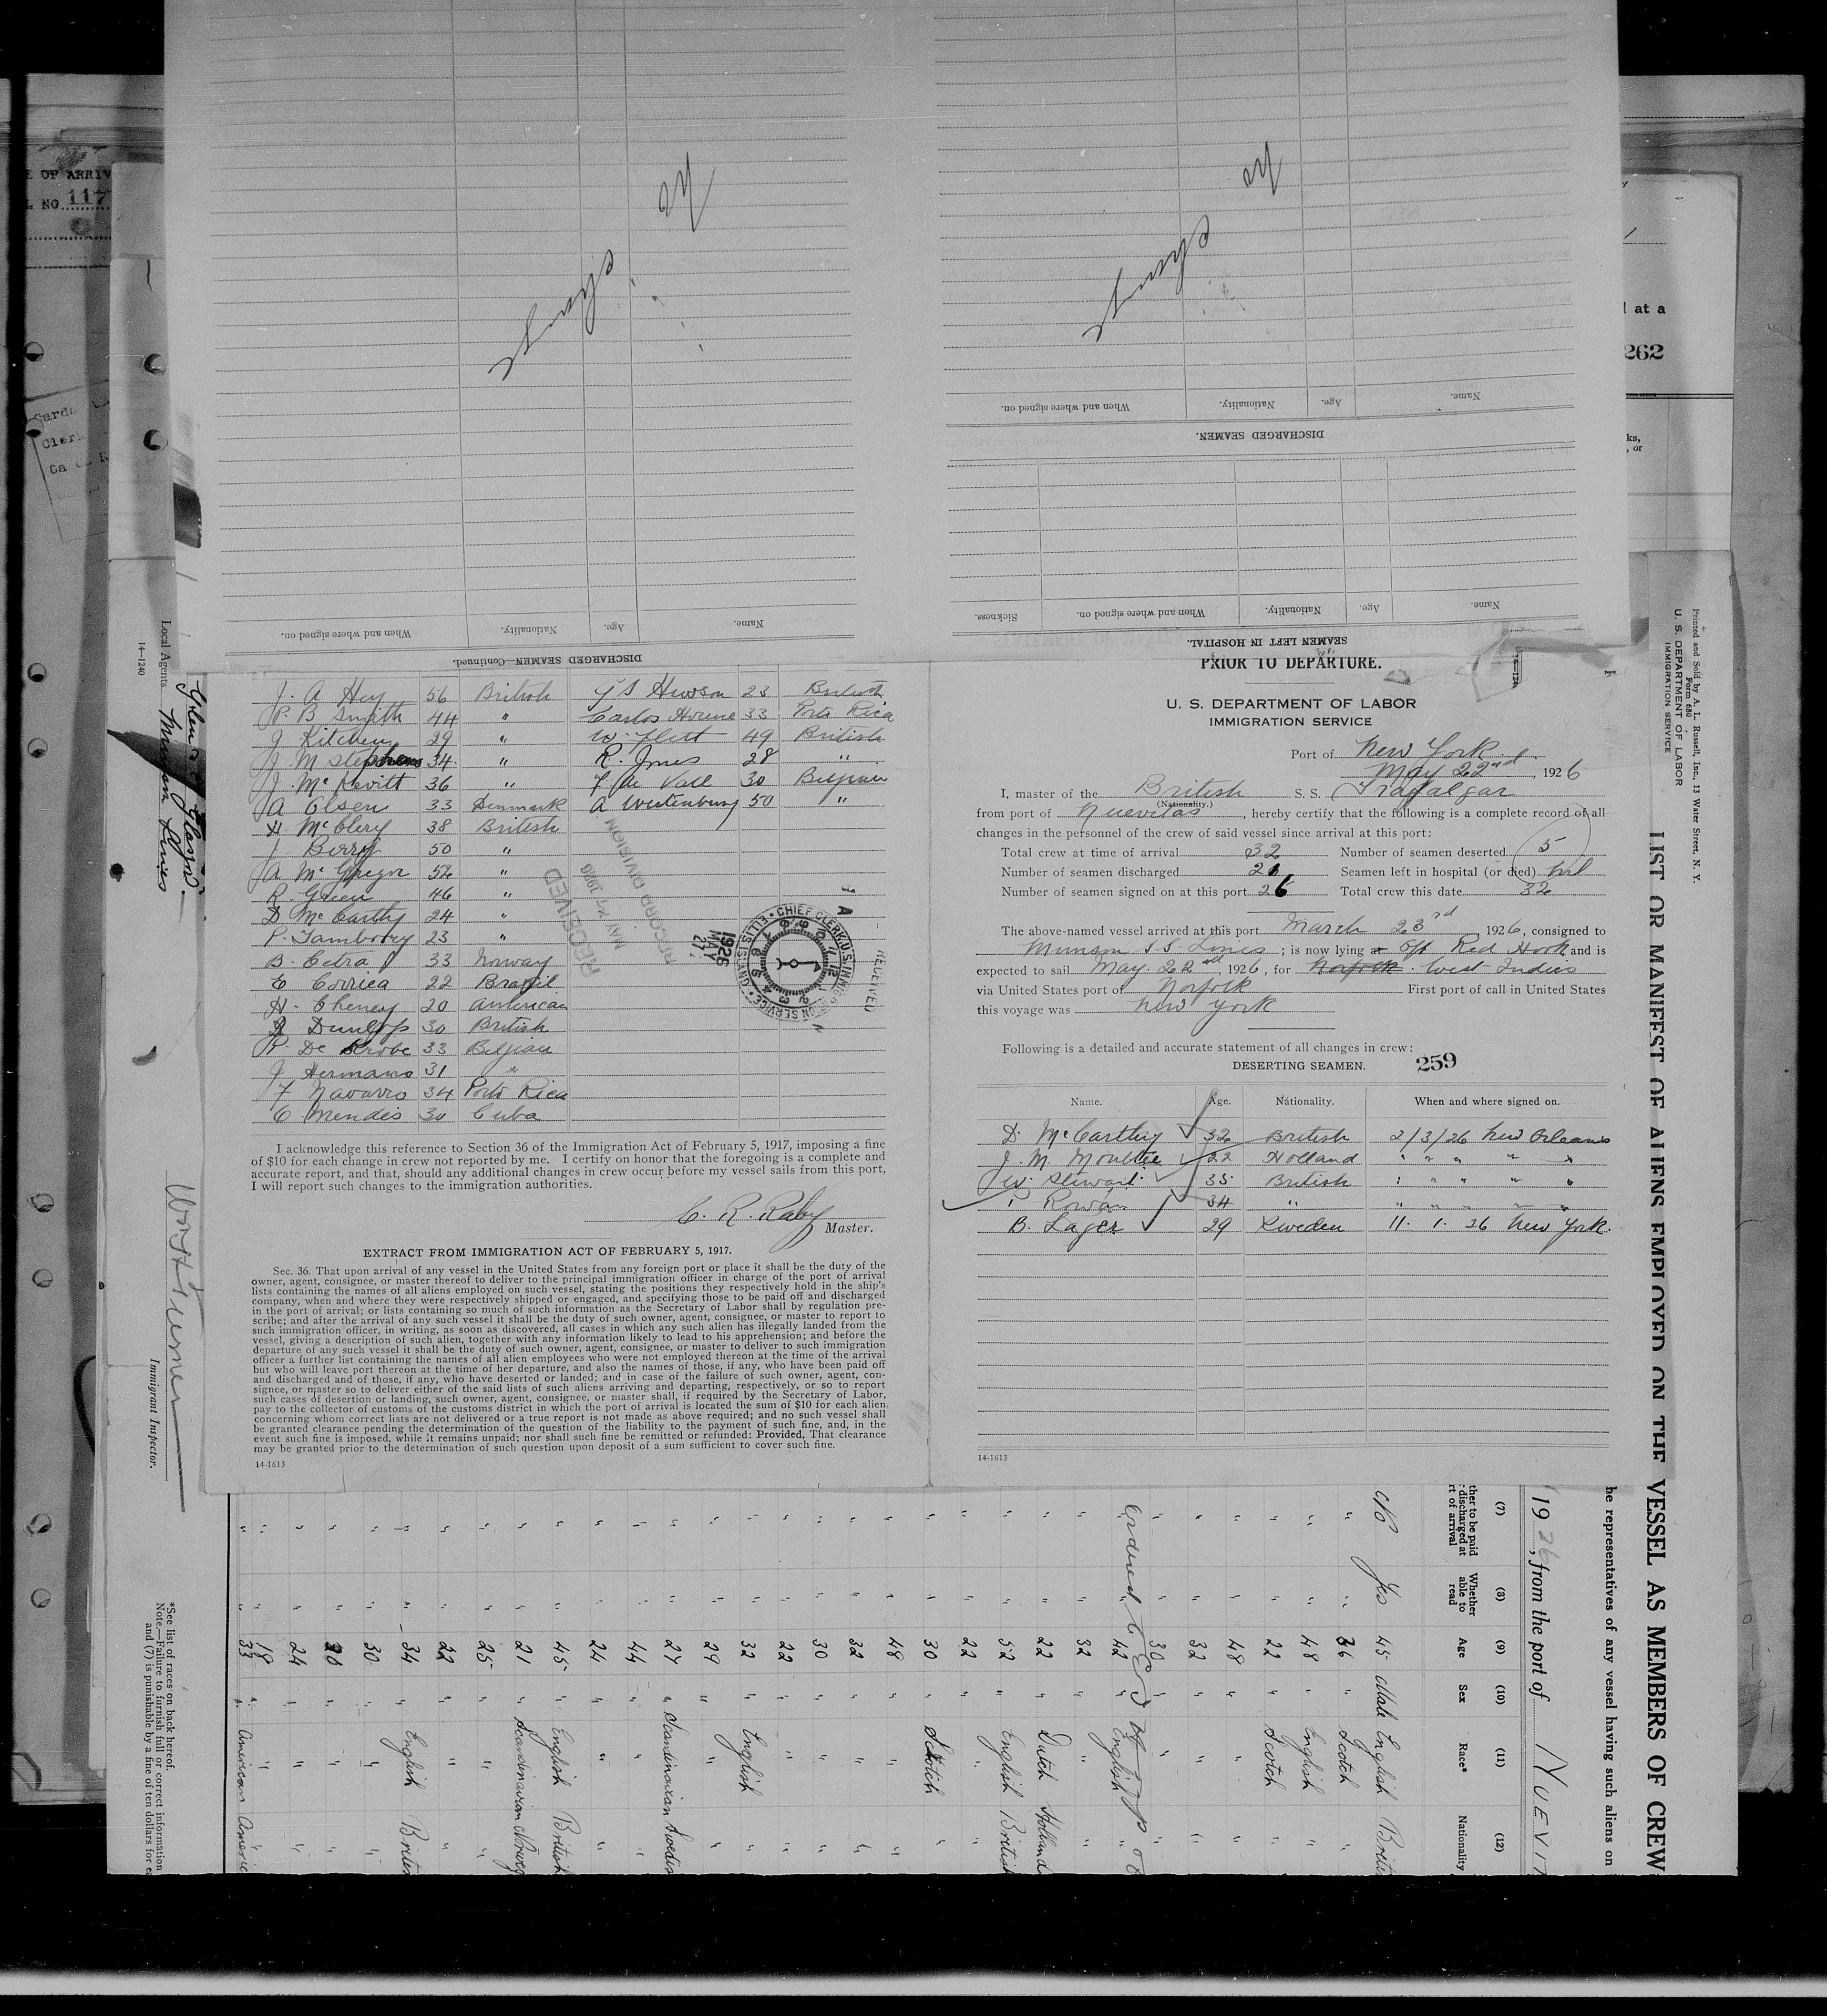 E OF ARRIV
L NO. 117
Clerk
at a
262
ks,
, or
When and where signed on.
Nationality.
Age.
Name.
DISCHARGED SEAMEN—Continued.
When and where signed on.
Nationality.
Age.
Name.
DISCHARGED SEAMEN.
Sickness.
When and where signed on.
Nationality.
Age.
Name.
SEAMEN LEFT IN HOSPITAL.
J. A Hey 56 British
P. B Smith 44 "
J Kitchen 29 "
J. M Stephens 34 "
J. McKevitt 36 "
A Olsen 33 Denmark
H McClery 38 British
J Berry 50 "
A McGregor 52 "
R. Green 46 "
D McCarthy 24 "
P. Tambory 23 "
B. Cetra 33 Norway
E Corriea 22 Brazil
H. Cheney 20 American
R Dunlop 30 British
P. De Krobe 33 Belgian
J Hermans 31 "
F Navarro 34 Porto Rica
C Mendis 30 Cuba
G S Hewson 23 British
Carlos 33 Porto Rica
W. Flett 49 British
R. Jones 28 "
F de Vall 30 Belgium
A Westenburg 50 "
RECEIVED
MAY 27 1926
RECORD DIVISION
CHIEF CLERK, U.S. IMMIGRATION SERVICE • ELLIS ISLAND
1926
MAY
27
RECEIVED
I acknowledge this reference to Section 36 of the Immigration Act of February 5, 1917, imposing a fine
of $10 for each change in crew not reported by me. I certify on honor that the foregoing is a complete and
accurate report, and that, should any additional changes in crew occur before my vessel sails from this port,
I will report such changes to the immigration authorities.
C. R. Raby
Master.
EXTRACT FROM IMMIGRATION ACT OF FEBRUARY 5, 1917.
Sec. 36. That upon arrival of any vessel in the United States from any foreign port or place it shall be the duty of the
owner, agent, consignee, or master thereof to deliver to the principal immigration officer in charge of the port of arrival
lists containing the names of all aliens employed on such vessel, stating the positions they respectively hold in the ship's
company, when and where they were respectively shipped or engaged, and specifying those to be paid off and discharged
in the port of arrival; or lists containing so much of such information as the Secretary of Labor shall by regulation pre-
scribe; and after the arrival of any such vessel it shall be the duty of such owner, agent, consignee, or master to report to
such immigration officer, in writing, as soon as discovered, all cases in which any such alien has illegally landed from the
vessel, giving a description of such alien, together with any information likely to lead to his apprehension; and before the
departure of any such vessel it shall be the duty of such owner, agent, consignee, or master to deliver to such immigration
officer a further list containing the names of all alien employees who were not employed thereon at the time of the arrival
but who will leave port thereon at the time of her departure, and also the names of those, if any, who have been paid off
and discharged and of those, if any, who have deserted or landed; and in case of the failure of such owner, agent, con-
signee, or master so to deliver either of the said lists of such aliens arriving and departing, respectively, or so to report
such cases of desertion or landing, such owner, agent, consignee, or master shall, if required by the Secretary of Labor,
pay to the collector of customs of the customs district in which the port of arrival is located the sum of $10 for each alien
concerning whom correct lists are not delivered or a true report is not made as above required; and no such vessel shall
be granted clearance pending the determination of the question of the liability to the payment of such fine, and, in the
event such fine is imposed, while it remains unpaid; nor shall such fine be remitted or refunded: Provided, That clearance
may be granted prior to the determination of such question upon deposit of a sum sufficient to cover such fine.
14-1613
PRIOR TO DEPARTURE.
U. S. DEPARTMENT OF LABOR
IMMIGRATION SERVICE
Port of New York
May 22nd, 1926
I, master of the British S. S. Trafalgar
(Nationality.)
from port of Nuevitas, hereby certify that the following is a complete record of all
changes in the personnel of the crew of said vessel since arrival at this port:
Total crew at time of arrival 32 Number of seamen deserted 5
Number of seamen discharged 21 Seamen left in hospital (or died) nil
Number of seamen signed on at this port 26 Total crew this date 32
The above-named vessel arrived at this port March 23rd, 1926, consigned to
Munson S.S. Lines; is now lying at Off Red Hook and is
expected to sail May 22nd, 1926, for Norfolk. West Indies
via United States port of Norfolk First port of call in United States
this voyage was New York
Following is a detailed and accurate statement of all changes in crew:
DESERTING SEAMEN. 259
Name. Age. Nationality. When and where signed on.
D. McCarthy 32 British 2/3/26 New Orleans
J. M. Moubtee 22 Holland " " " " "
W. Stewart 35 British " " " " "
P Rowan 34 " " " " " "
B. Lager 29 Sweden 11. 1. 26 New York.
14-1613
Local Agents Munson Lines
14—1240
Immigrant Inspector.
*See list of races on back hereof.
Note.—Failure to furnish full or correct information
and (7) is punishable by a fine of ten dollars for ea
Printed and Sold by A. L. Russell, Inc., 13 Water Street, N. Y.
Form 680
U. S. DEPARTMENT OF LABOR
IMMIGRATION SERVICE
LIST OR MANIFEST OF ALIENS EMPLOYED ON THE VESSEL AS MEMBERS OF CREW
he representatives of any vessel having such aliens on
1926, from the port of NUEVIT
(7) (8) (9) (10) (11) (12)
ther to be paid
discharged at
rt of arrival
Whether
able to
read
Age
Sex
Race*
Nationality
No Yes 45 Male English Britis
" " 36 " Scotch "
" " 48 " English "
" " 22 " Scotch "
" " 48 " " "
" " 32 " " "
" " 30 " " "
" " 42 " English "
" " 32 " " "
" " 22 " Dutch Holland
" " 52 " English British
" " 22 " " "
" " 30 " Scotch "
" " 48 " " "
" " 32 " " "
" " 30 " " "
" " 22 " " "
" " 32 " English "
" " 29 " " "
" " 27 " Scandinavian Swedis
" " 44 " " "
" " 24 " " "
" " 45 " English British
" " 21 " Scandinavian Norweg
" " 25 " " "
" " 22 " " "
" " 34 " English British
" " 30 " " "
" " 20 " " "
" " 24 " " "
" " 18 " " "
" " 33 " American America